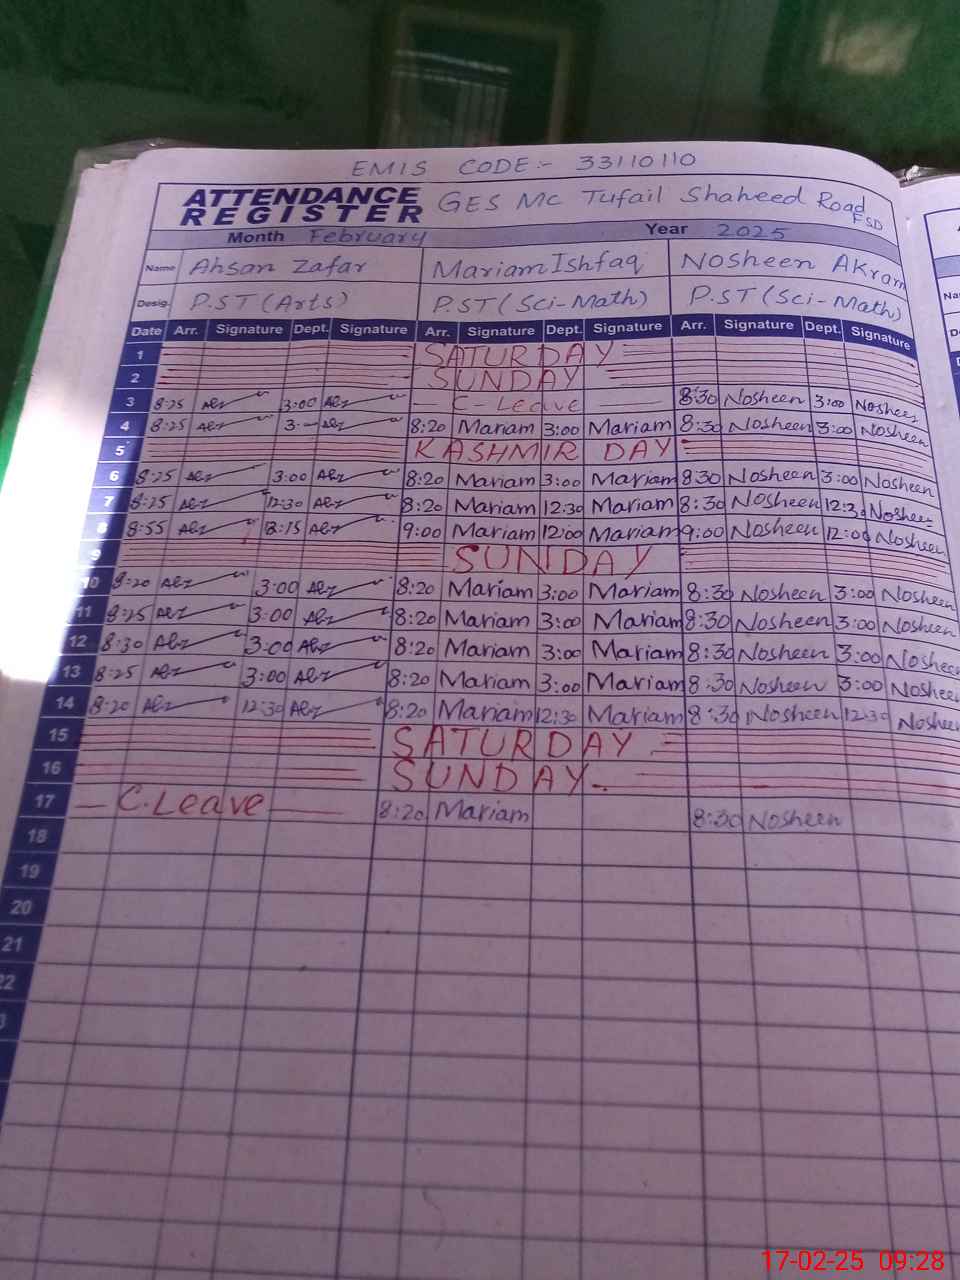 EMIS CODE:- 33110110
ATTENDANCE REGISTER GES MC Tufail Shaheed Road FSD
Month February Year 2025
Name Ahsan Zafar Mariam Ishfaq Nosheen Akram
Desig. P.ST (Arts) P.ST (Sci-Math) P.ST (Sci-Math)
Date Arr. Signature Dept. Signature Arr. Signature Dept. Signature Arr. Signature Dept. Signature
1 SATURDAY
2 SUNDAY
3 8:25 3:00 C-Leave 8:30 Nosheen 3:00 Nosheen
4 8:25 3:- 8:20 Mariam 3:00 Mariam 8:30 Nosheen 3:00 Nosheen
5 KASHMIR DAY
6 8:25 3:00 8:20 Mariam 3:00 Mariam 8:30 Nosheen 3:00 Nosheen
7 8:25 12:30 8:20 Mariam 12:30 Mariam 8:30 Nosheen 12:30 Nosheen
8 8:55 9:00 Mariam 12:00 Mariam 9:00 Nosheen 12:00 Nosheen
9 SUNDAY
10 8:20 3:00 8:20 Mariam 3:00 Mariam 8:30 Nosheen 3:00 Nosheen
11 8:25 3:00 8:20 Mariam 3:00 Mariam 8:30 Nosheen 3:00 Nosheen
12 8:30 3:00 8:20 Mariam 3:00 Mariam 8:30 Nosheen 3:00 Nosheen
13 8:25 3:00 8:20 Mariam 3:00 Mariam 8:30 Nosheen 3:00 Nosheen
14 8:20 12:30 8:20 Mariam 12:30 Mariam 8:30 Nosheen 12:30 Nosheen
15 SATURDAY
16 SUNDAY
17 C.Leave 8:20 Mariam 8:30 Nosheen
18
19
20
21
22
17-02-25 09:28